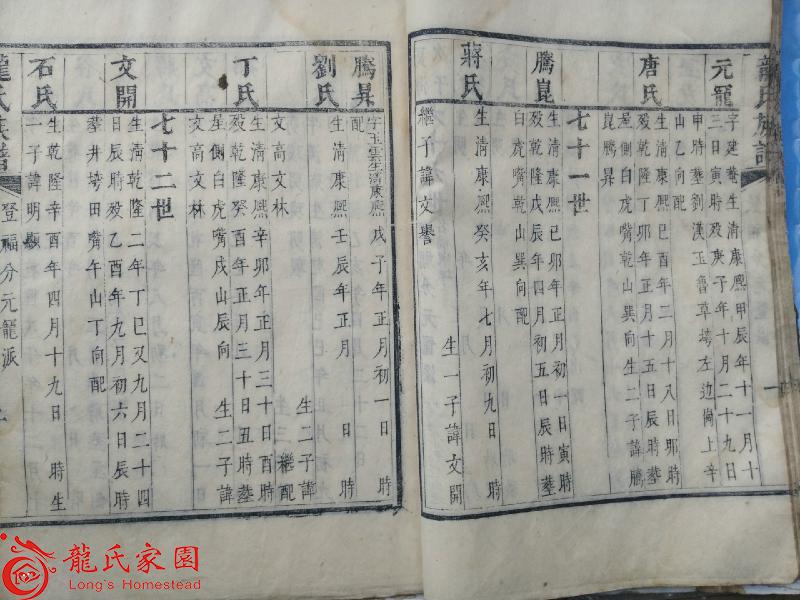 龍氏族譜
元寵
字建菴生清康熙甲辰年十一月十
三日寅時歿庚子年十月二十九日
甲時葬劉漢玉魯草塆左边崗上辛
山乙向配
唐氏
生清康熙己酉年二月十八日耶時
歿乾隆丁卯年正月十五日辰時葬
星側白虎嘴乾山巽向生二子諱騰
崑騰昇
七十一世
騰崑
生清康熙己卯年正月初一日寅時
歿乾隆戊辰年四月初五日辰時葬
白虎嘴乾山巽向配
蔣氏
生清康熙癸亥年七月初九日 時
生一子諱文開
繼子諱文譽
騰昇
字玉雲生清康熙戊子年正月初一日 時
配
劉氏
生清康熙壬辰年正月 日 時
生二子諱
文高文林 生三繼配
丁氏
生清康熙辛卯年正月三十日酉時
歿乾隆癸酉年正月三十日丑時葬
星側白虎嘴戌山辰向 生二子諱
文高文林
七十二世
文開
生清乾隆二年丁巳又九月二十四
日辰時歿乙酉年九月初六日辰時
葬井塆田嘴午山丁向配
石氏
生乾隆辛酉年四月十九日 時生
一子諱明顯
龍氏族譜
登福分元寵派
龍氏家園
Long's Homestead